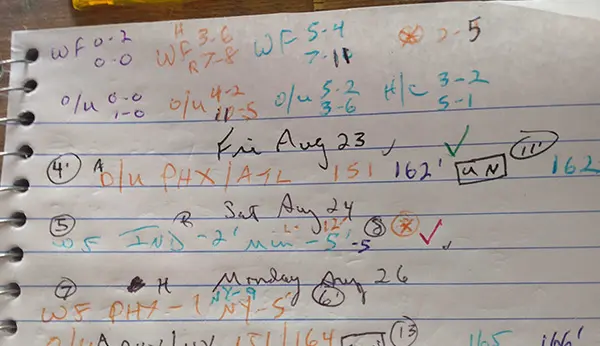 WF 0-2 H 3-6 WF 5-4 2-5
0-0 WF R 7-8 7-11
O/U 0-0 O/U 4-2 O/U 5-2 H/C 3-2
1-0 11-5 3-6 5-1
Fri Aug 23
4' A O/U PHX/ATL 151 162' UN 11' 162
R Sat Aug 24
5 WF IND-2' Min-5' -5 8
7 H Monday Aug 26
WF PHX-1 NY-9 NY-5' 6'
O/U A 151/164 13 165 166'